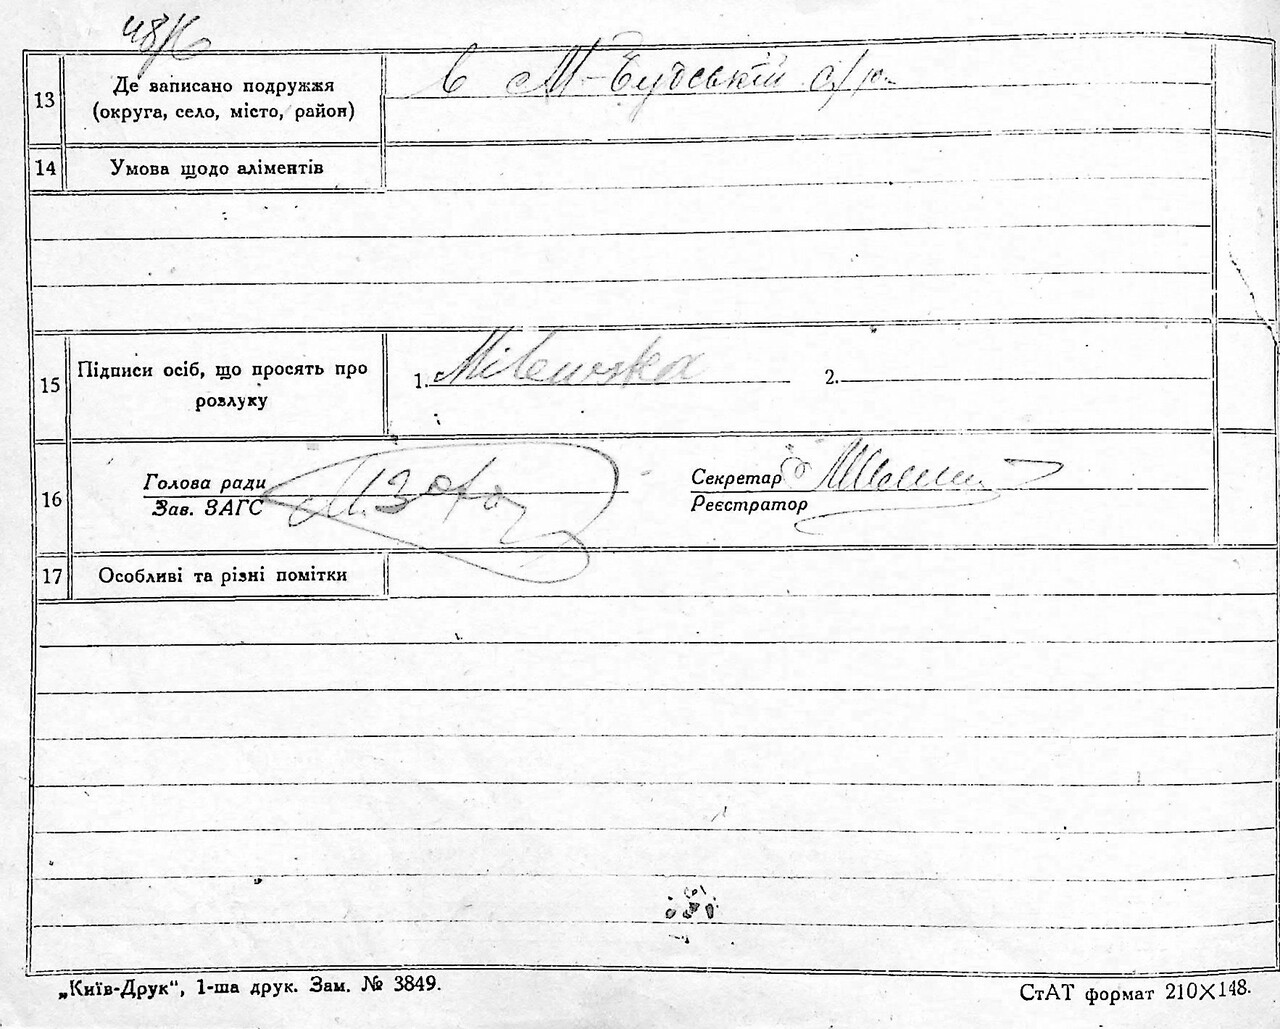 13 Де записано подружжя (округа, село, місто, район) в М-Будській с/р.
14 Умова щодо аліментів
15 Підписи осіб, що просять про розлуку 1. 2.
16 Голова ради Зав. ЗАГС Секретар Реєстратор
17 Особливі та різні помітки
„Київ-Друк“, 1-ша друк. Зам. № 3849. СтАТ формат 210×148.